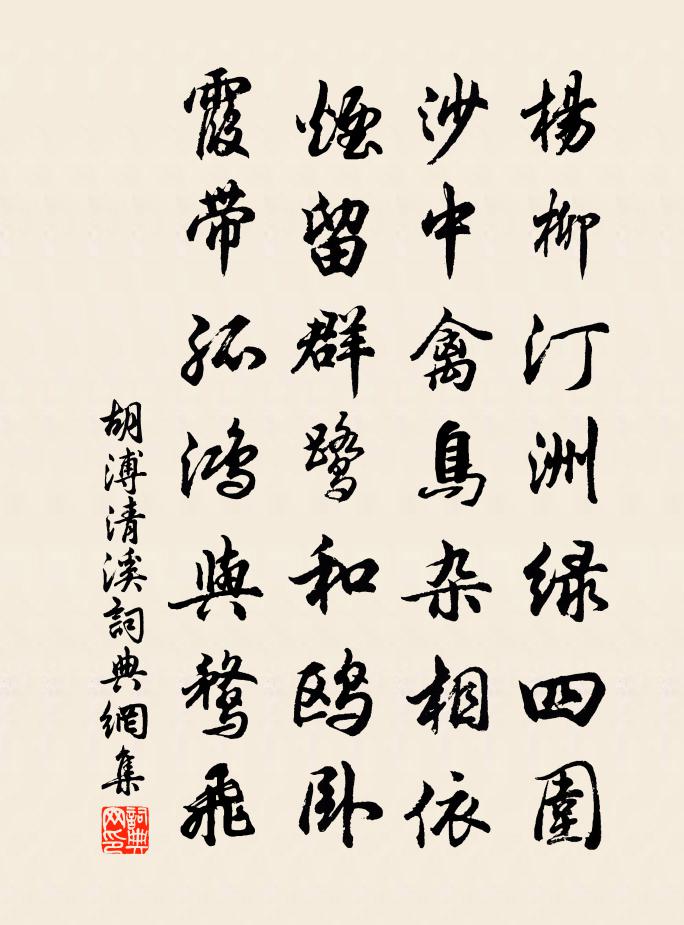 楊柳汀洲綠四圍
沙中禽鳥杂相依
煙留群鷺和鸥卧
霞带孤鸿與鶩飛
胡溥清溪詞典網集
詞典
网印